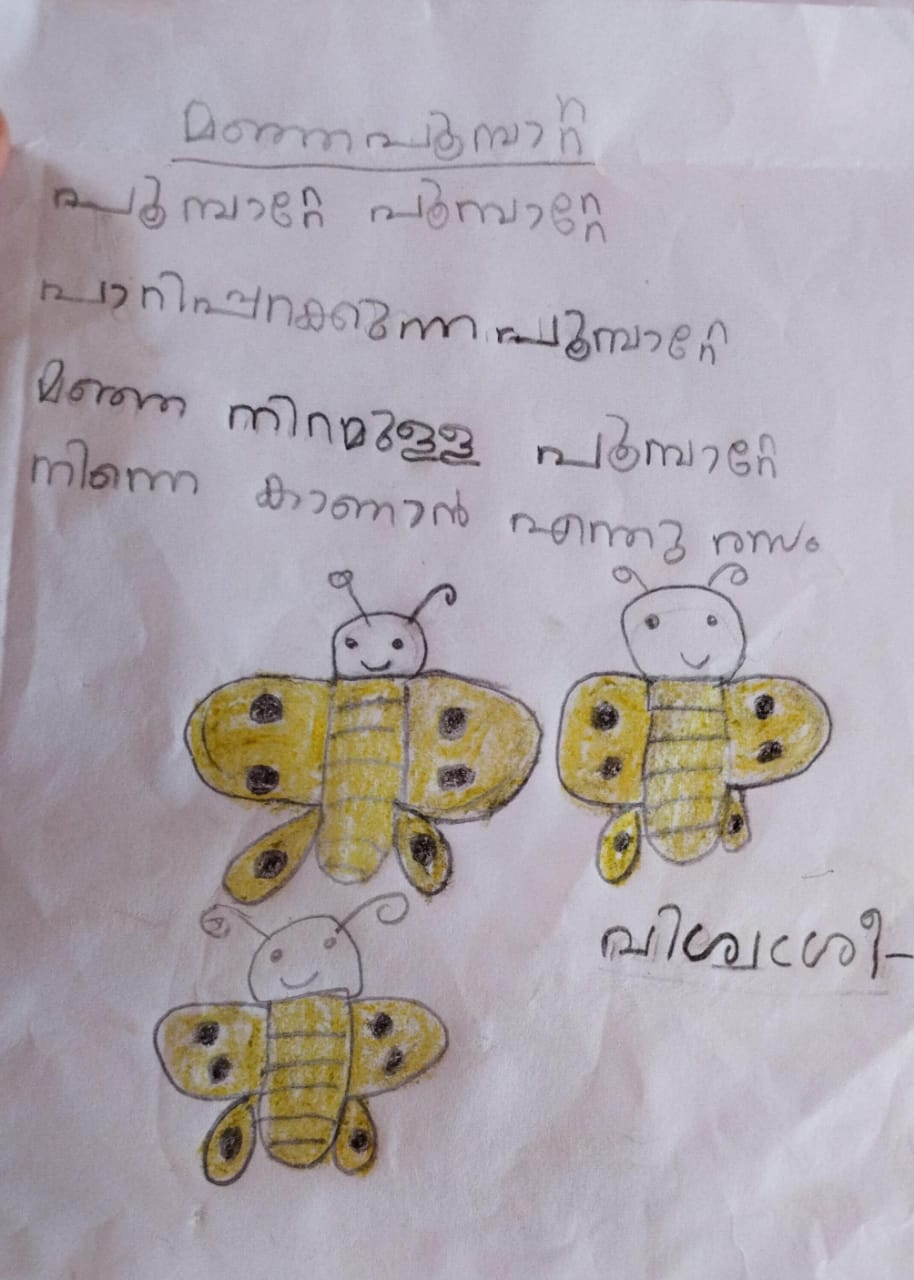 മഞ്ഞപൂമ്പാറ്റ
പൂമ്പാറ്റേ പൂമ്പാറ്റേ
പാറിപ്പറക്കുന്ന പൂമ്പാറ്റേ
മഞ്ഞ നിറമുള്ള പൂമ്പാറ്റേ
നിന്നെ കാണാൻ എന്തു രസം